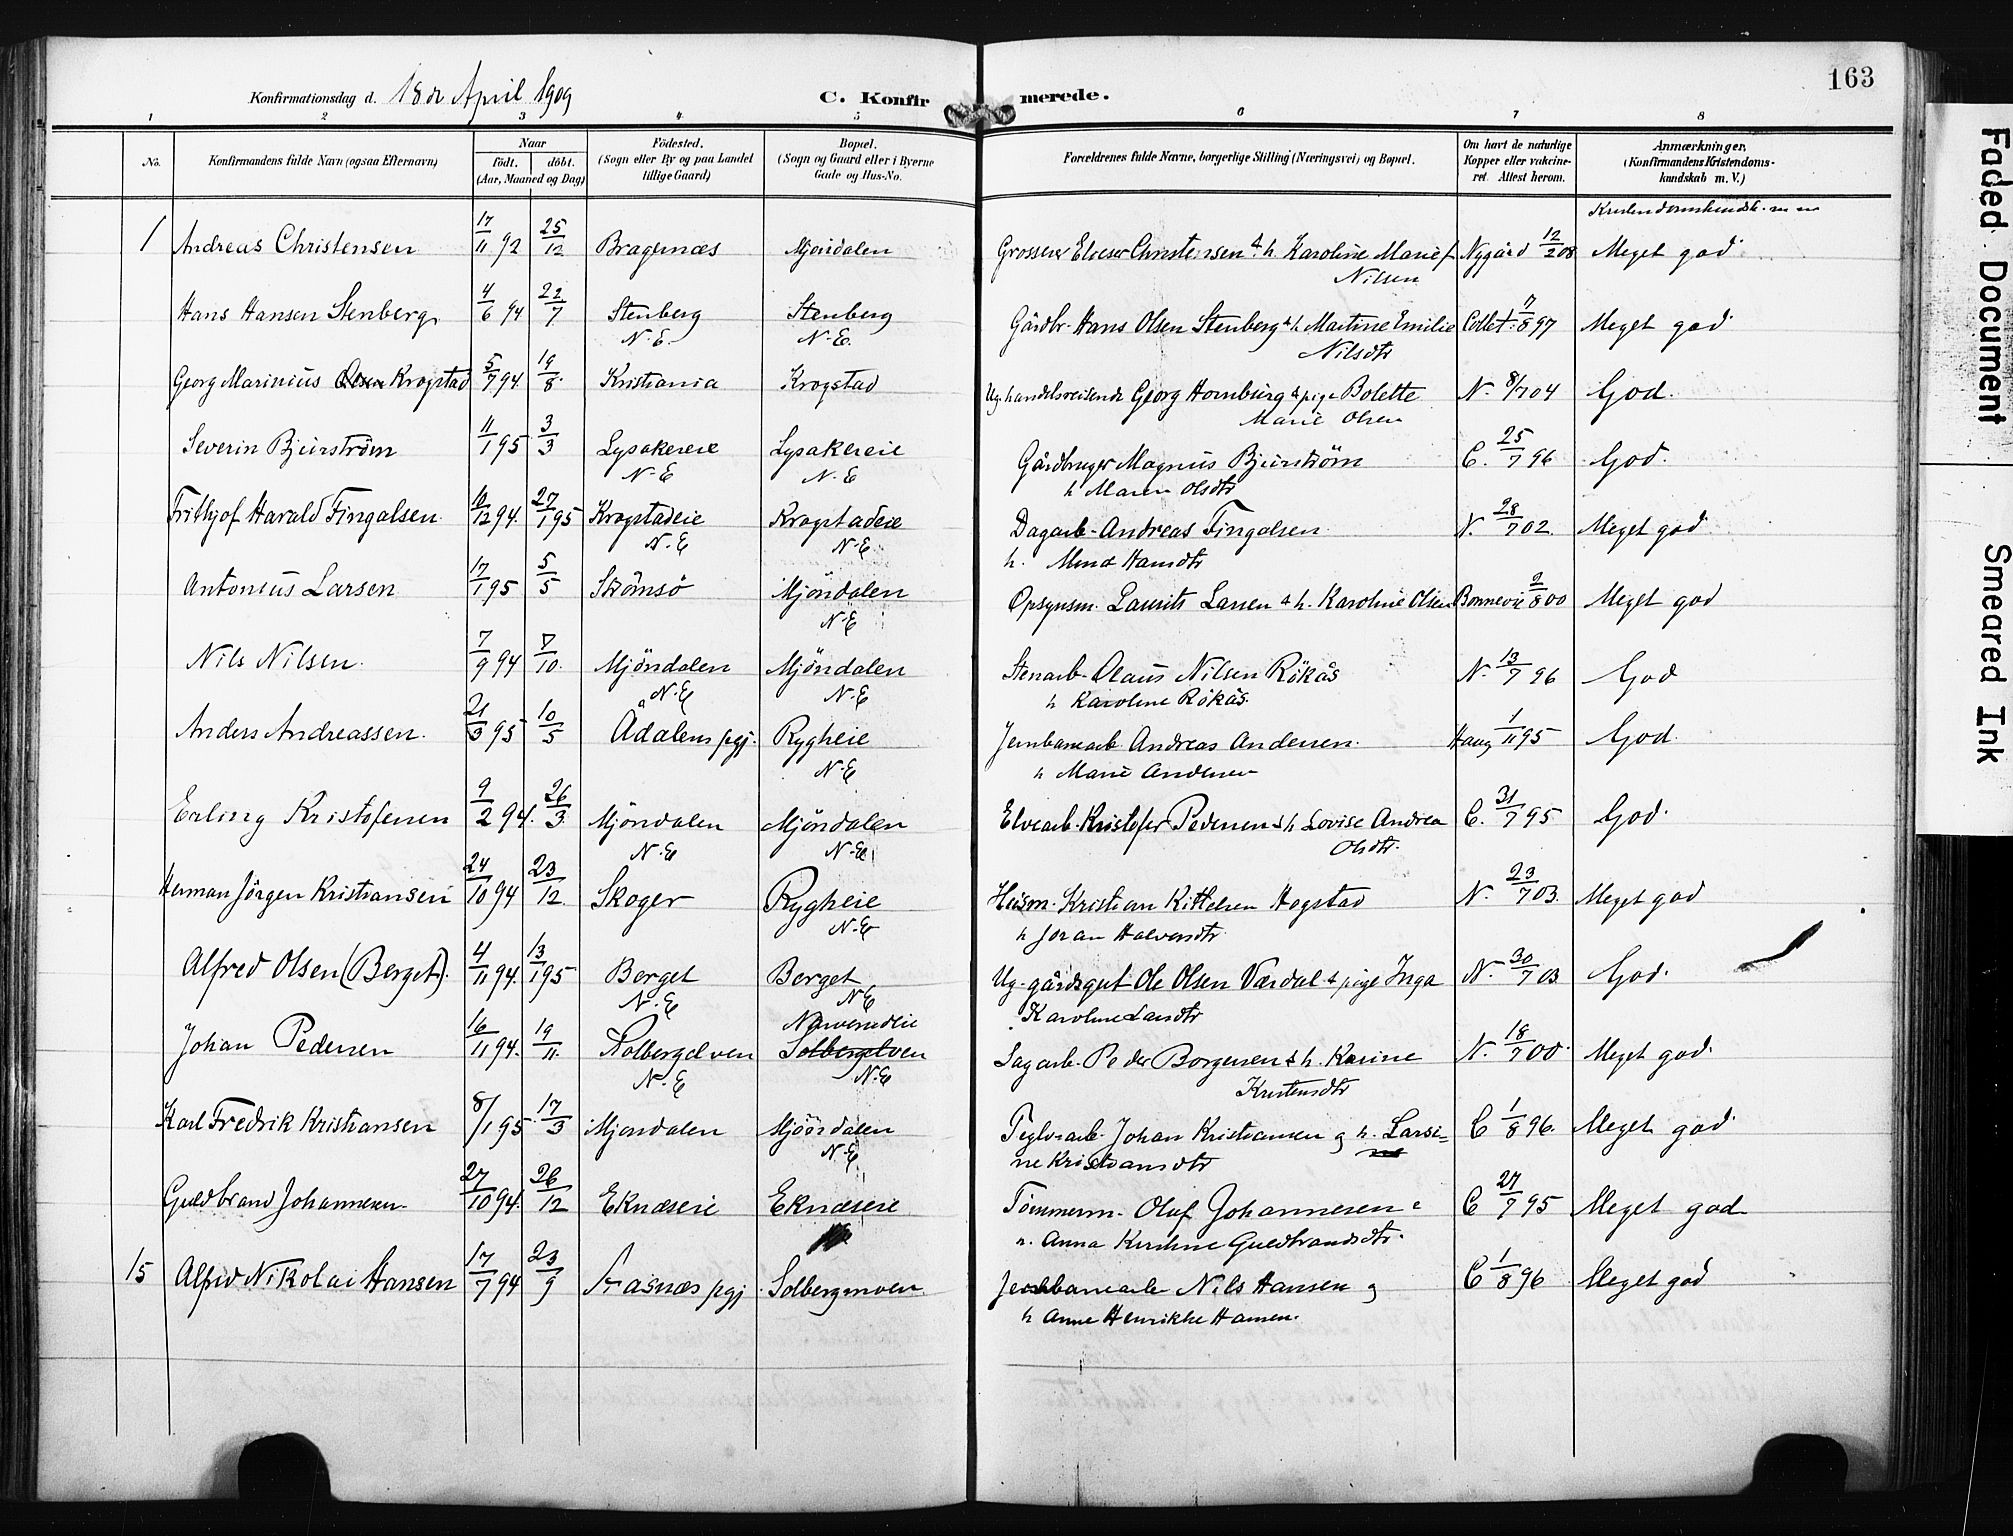 163
Konfirmationsdag d. 18de April 1909 C. Konfirmerede.
1 2 3 4 5 6 7 8
No. Konfirmandens fulde Navn (ogsaa Efternavn) Naar født. døbt. (Aar, Maaned og Dag) Fødested. (Sogn eller By og paa Landet tillige Gaard) Bopæl. (Sogn og Gaard eller i Byerne Gade og Hus-No. Forældrenes fulde Navne, borgerlige Stilling (Næringsvei) og Bopæl. Om havt de naturlige Kopper eller vakcineret. Attest herom. Anmærkninger, (Konfirmandens Kristendomskundskab m. V.)
Kristendomskundsk.
1 Andreas Christensen 17/11 92 25/12 Bragernæs Mjøndalen Grosserer Christensen & h. Karoline Marie f. Nygård 12/2 08 Meget god
Nilsen
Hans Hansen Stenberg 4/6 94 22/7 Stenberg Stenberg Gårdbr. Hans Olsen Stenberg & h Martine Emilie Collet 7/8 97 Meget god
N. E. N. E. Nilsdtr
Georg Marinius Olsen Krogstad 5/7 94 19/8 Kristiania Krogstad Ug. handelsreisende Georg Hornburg & pige Bolette N. 8/7 04 God.
Marie Olsen
Severin Bjurström 11/1 95 3/3 Lysakereie Lysakereie Gårdbruger Magnus Bjurström C. 25/7 96 God.
N. E N. E h Maren Olsdtr
Frithjof Harald Fingalsen 10/12 94. 27/1 95 Krogstadeie Krogstadeie Dagarb. Andreas Fingalsen N. 28/7 02. Meget god
N. E N. E h. Mina Hansdtr
Antonius Larsen 17/1 95 5/5 Strömsö Mjöndalen Opsynsm. Laurits Larsen & h. Karoline Olsen Bonnevie 9/8 00 Meget god
N. E
Nils Nilsen. 7/9 94 7/10. Mjöndalen Mjöndalen Stenarb. Olaus Nilsen Rökås N. 13/7 96 God
N. E N. E h Karoline Rökås.
Anders Andreassen. 21/3 95 10/5 Ådalens pgj. Rygheie Jernbanearb. Andreas Andersen. Haug 1/11 95 God
N. E h Marie Andersen
Erling Kristofersen 9/2 94. 26/3 Mjöndalen Mjöndalen Elvearb. Kristofer Pedersen & h Lovise Andrea C. 31/7 95 God.
N. E N. E Olsdtr.
Herman Jörgen Kristiansen 24/10 94 23/12. Skoger Rygheie Husm. Kristian Kittelsen Hogstad N. 23/7 03. Meget god
N. E h Joran Halvorsdtr
Alfred Olsen (Berget). 4/11 94. 13/1 95 Berget Berget Ug. gårdsgut Ole Olsen Værdal & pige Inga N. 30/7 03 God.
N. E N. E Karoline Larsdtr
Johan Pedersen 16/11 94. 19/11. Solbergelven Solbergelven Sagarb. Peder Borgersen & h. Karine N. 18/7 00. Meget god.
N. E N. E Kristensdtr
Karl Fredrik Kristiansen 8/1 95 17/3 Mjondalen Mjöndalen Teglvarb. Johan Kristiansen og h. Larsi= C 1/8 96. Meget god
N. E ne Kristiansdtr
Guldbrand Johannesen 27/10 94. 26/12 Eknæseie Eknæseie Tömmerm. Oluf Johannesen & C 27/7 95 Meget god
h. Anna Kirstine Guldbrandsdtr.
15 Alfred Nikolai Hansen 17/7 94 23/9 Aasnæs pgj Solbergmoen Jernbanearb Nils Hansen og C 1/8 96 Meget god
h Anne Henrikke Hansen.
Faded Document Smeared Ink